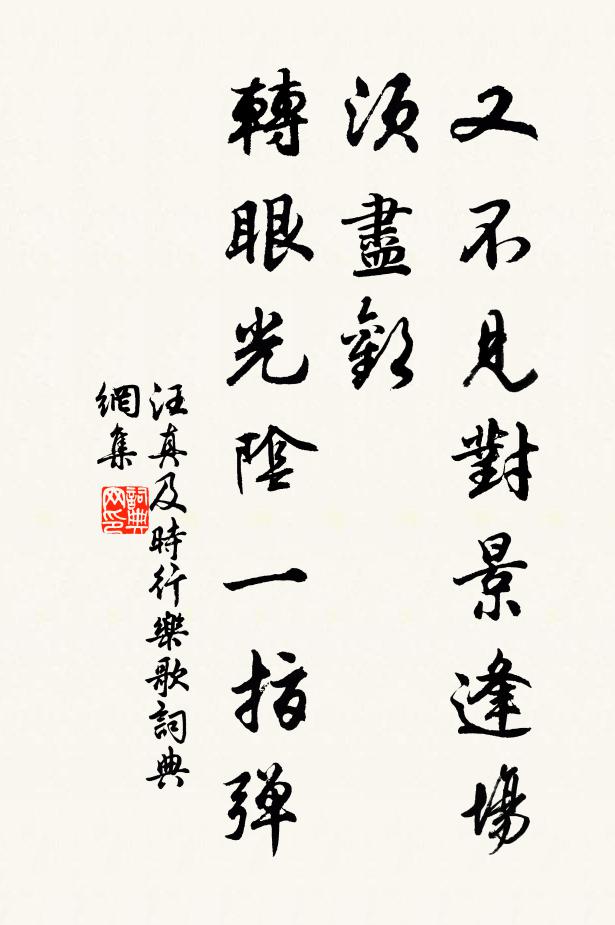 又不見對景逢場
須盡歡
轉眼光陰一指彈
汪真及時行樂歌詞典
網集
詞典
网印